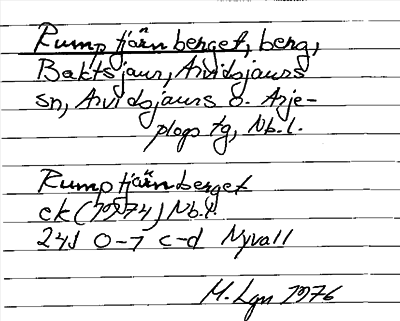 Rumptjärnberget, berg,
Baktsjaur, Arvidsjaurs
sn, Arvidsjaurs o. Arje-
plogs tg, Nb.l.
Rumptjärnberget
ek (1974) Nb.l.
24J 0-1 c-d Nyvall
M. Lgn 1976